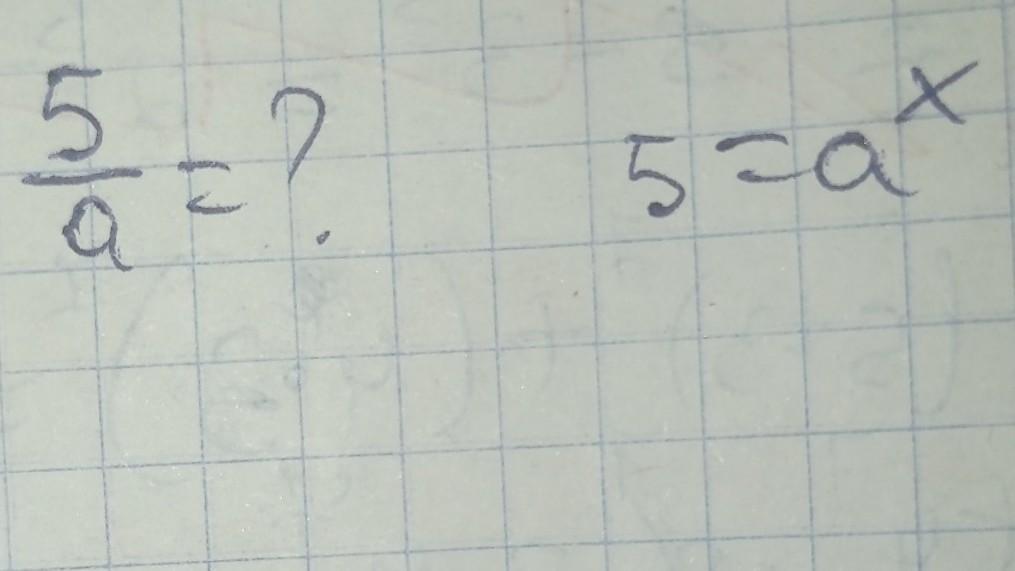 5/a = ?
5 = a^x